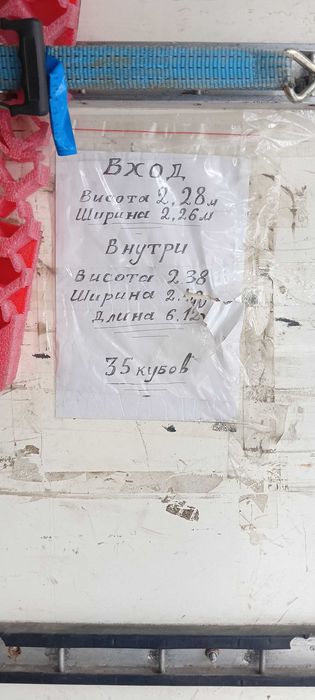 Вход
Высота 2,28м
Ширина 2,26м
Внутри
Высота 2.38
Ширина
Длина 6.12
35 кубов